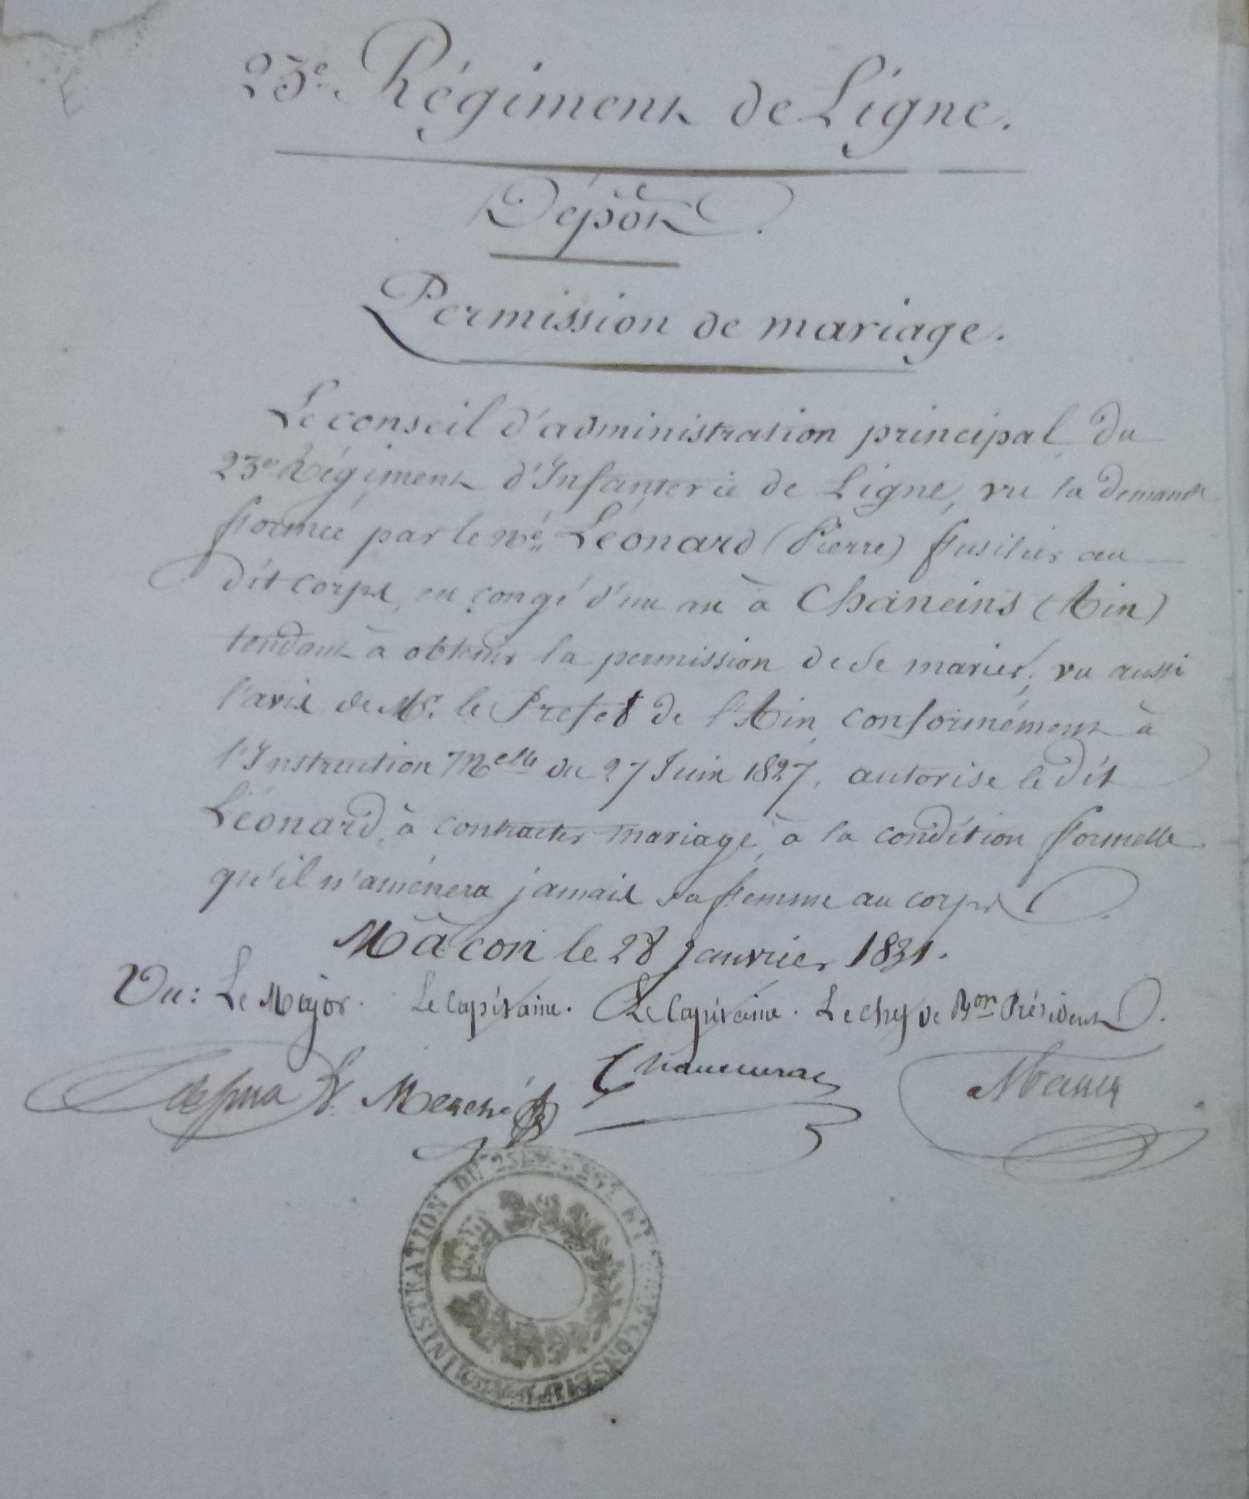 23e Régiment de Ligne.
Dépôt.
Permission de mariage.
Le conseil d'administration principal du
23e Régiment d'Infanterie de Ligne, vu la demande
formée par le né Léonard (Pierre) fusilier au
dit corps, en congé d'un an à Chaneins (Ain)
tendant à obtenir la permission de se marier, vu aussi
l'avis de Mr. le Préfet de l'Ain, conformément à
l'Instruction Melle du 27 Juin 1827, autorise le dit
Léonard, à contracter mariage, à la condition formelle
qu'il n'amènera jamais sa femme au corps.
Mâcon le 28 janvier 1831.
Vu: Le Major. Le Capitaine. Le Capitaine. Le chef de Bon Président.
ADMINISTRATION DU 23E CONSEIL